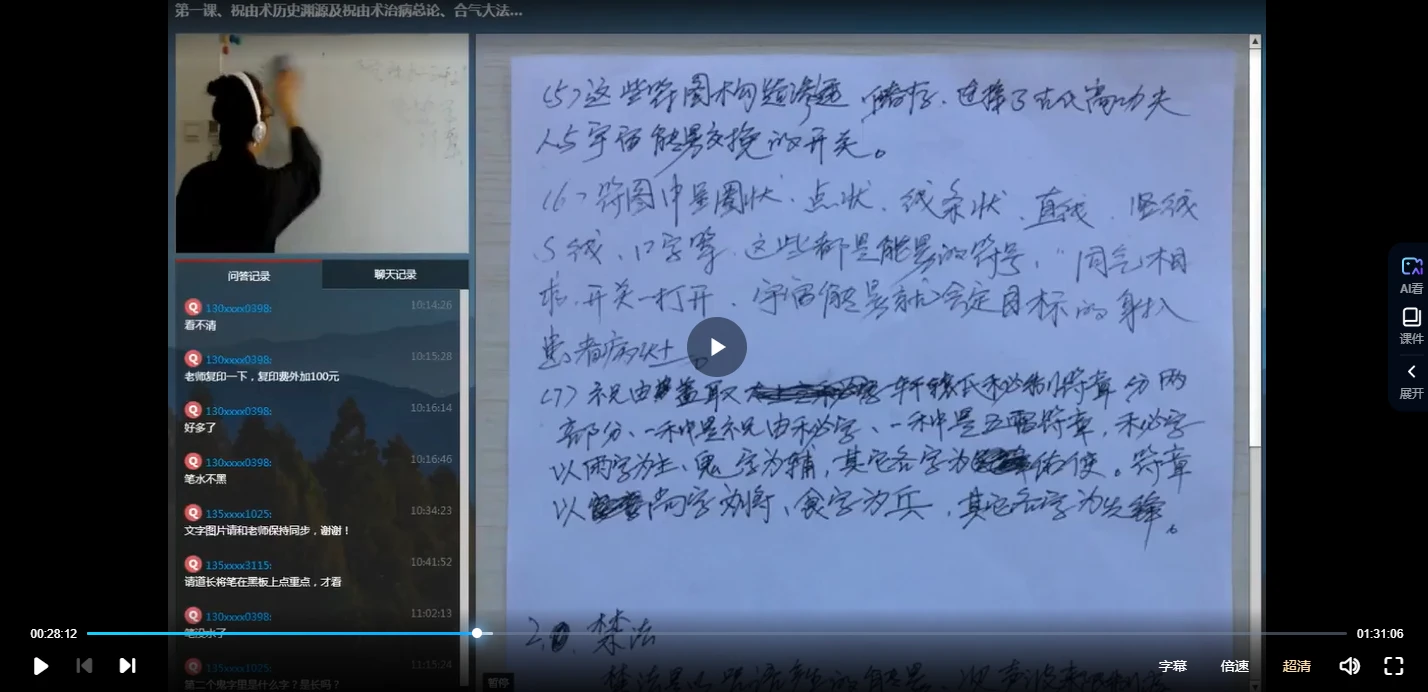 第一课、祝由术历史渊源及祝由术治病总论、合气大法...
问答记录
聊天记录
130xxxx0398:
10:14:26
看不清
130xxxx0398:
10:15:28
老师复印一下，复印费外加100元
130xxxx0398:
10:16:14
好多了
130xxxx0398:
10:16:46
笔水不黑
135xxxx1025:
10:34:23
文字图片请和老师保持同步，谢谢！
135xxxx3115:
10:41:52
请道长将笔在黑板上点重点，才看
130xxxx0398:
11:02:13
笔没水了
135xxxx1025:
11:15:24
第二个鬼字里是什么字？是长吗？
(5)这些符图构造渗透、储存、选择了古代高功夫
人与宇宙能量交换的开关。
(6)符图中呈圈状、点状、线条状、直线、竖线
S线、口字等、这些都是能量的符号，"同气相
求，开关一打开，宇宙能量就会定目标的射入
患者病灶上。
(7)祝由盖取轩辕氏秘制符章分两
部分、一种是祝由秘字、一种是五雷符章，秘字
以雨字为主、鬼字为辅，其它各字为佐使。符章
以尚字为将、食字为兵，其它各字为先锋。
2. 禁法
暂停
00:28:12
01:31:06
字幕
倍速
超清
AI看
课件
展开